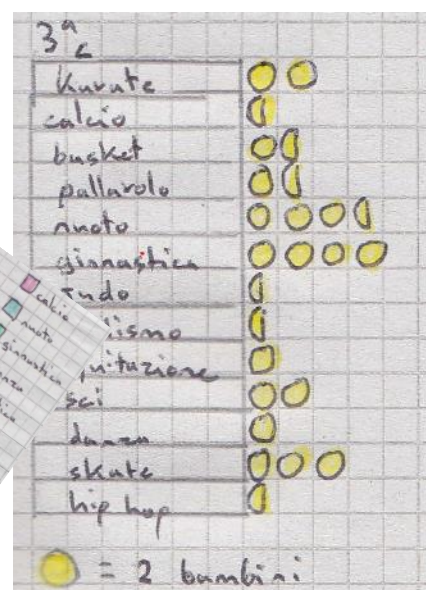 3ª C
Karate
calcio
basket
pallavolo
nuoto
ginnastica
Judo
equitazione
sci
danza
skate
hip hop
= 2 bambini
calcio
nuoto
ginnastica